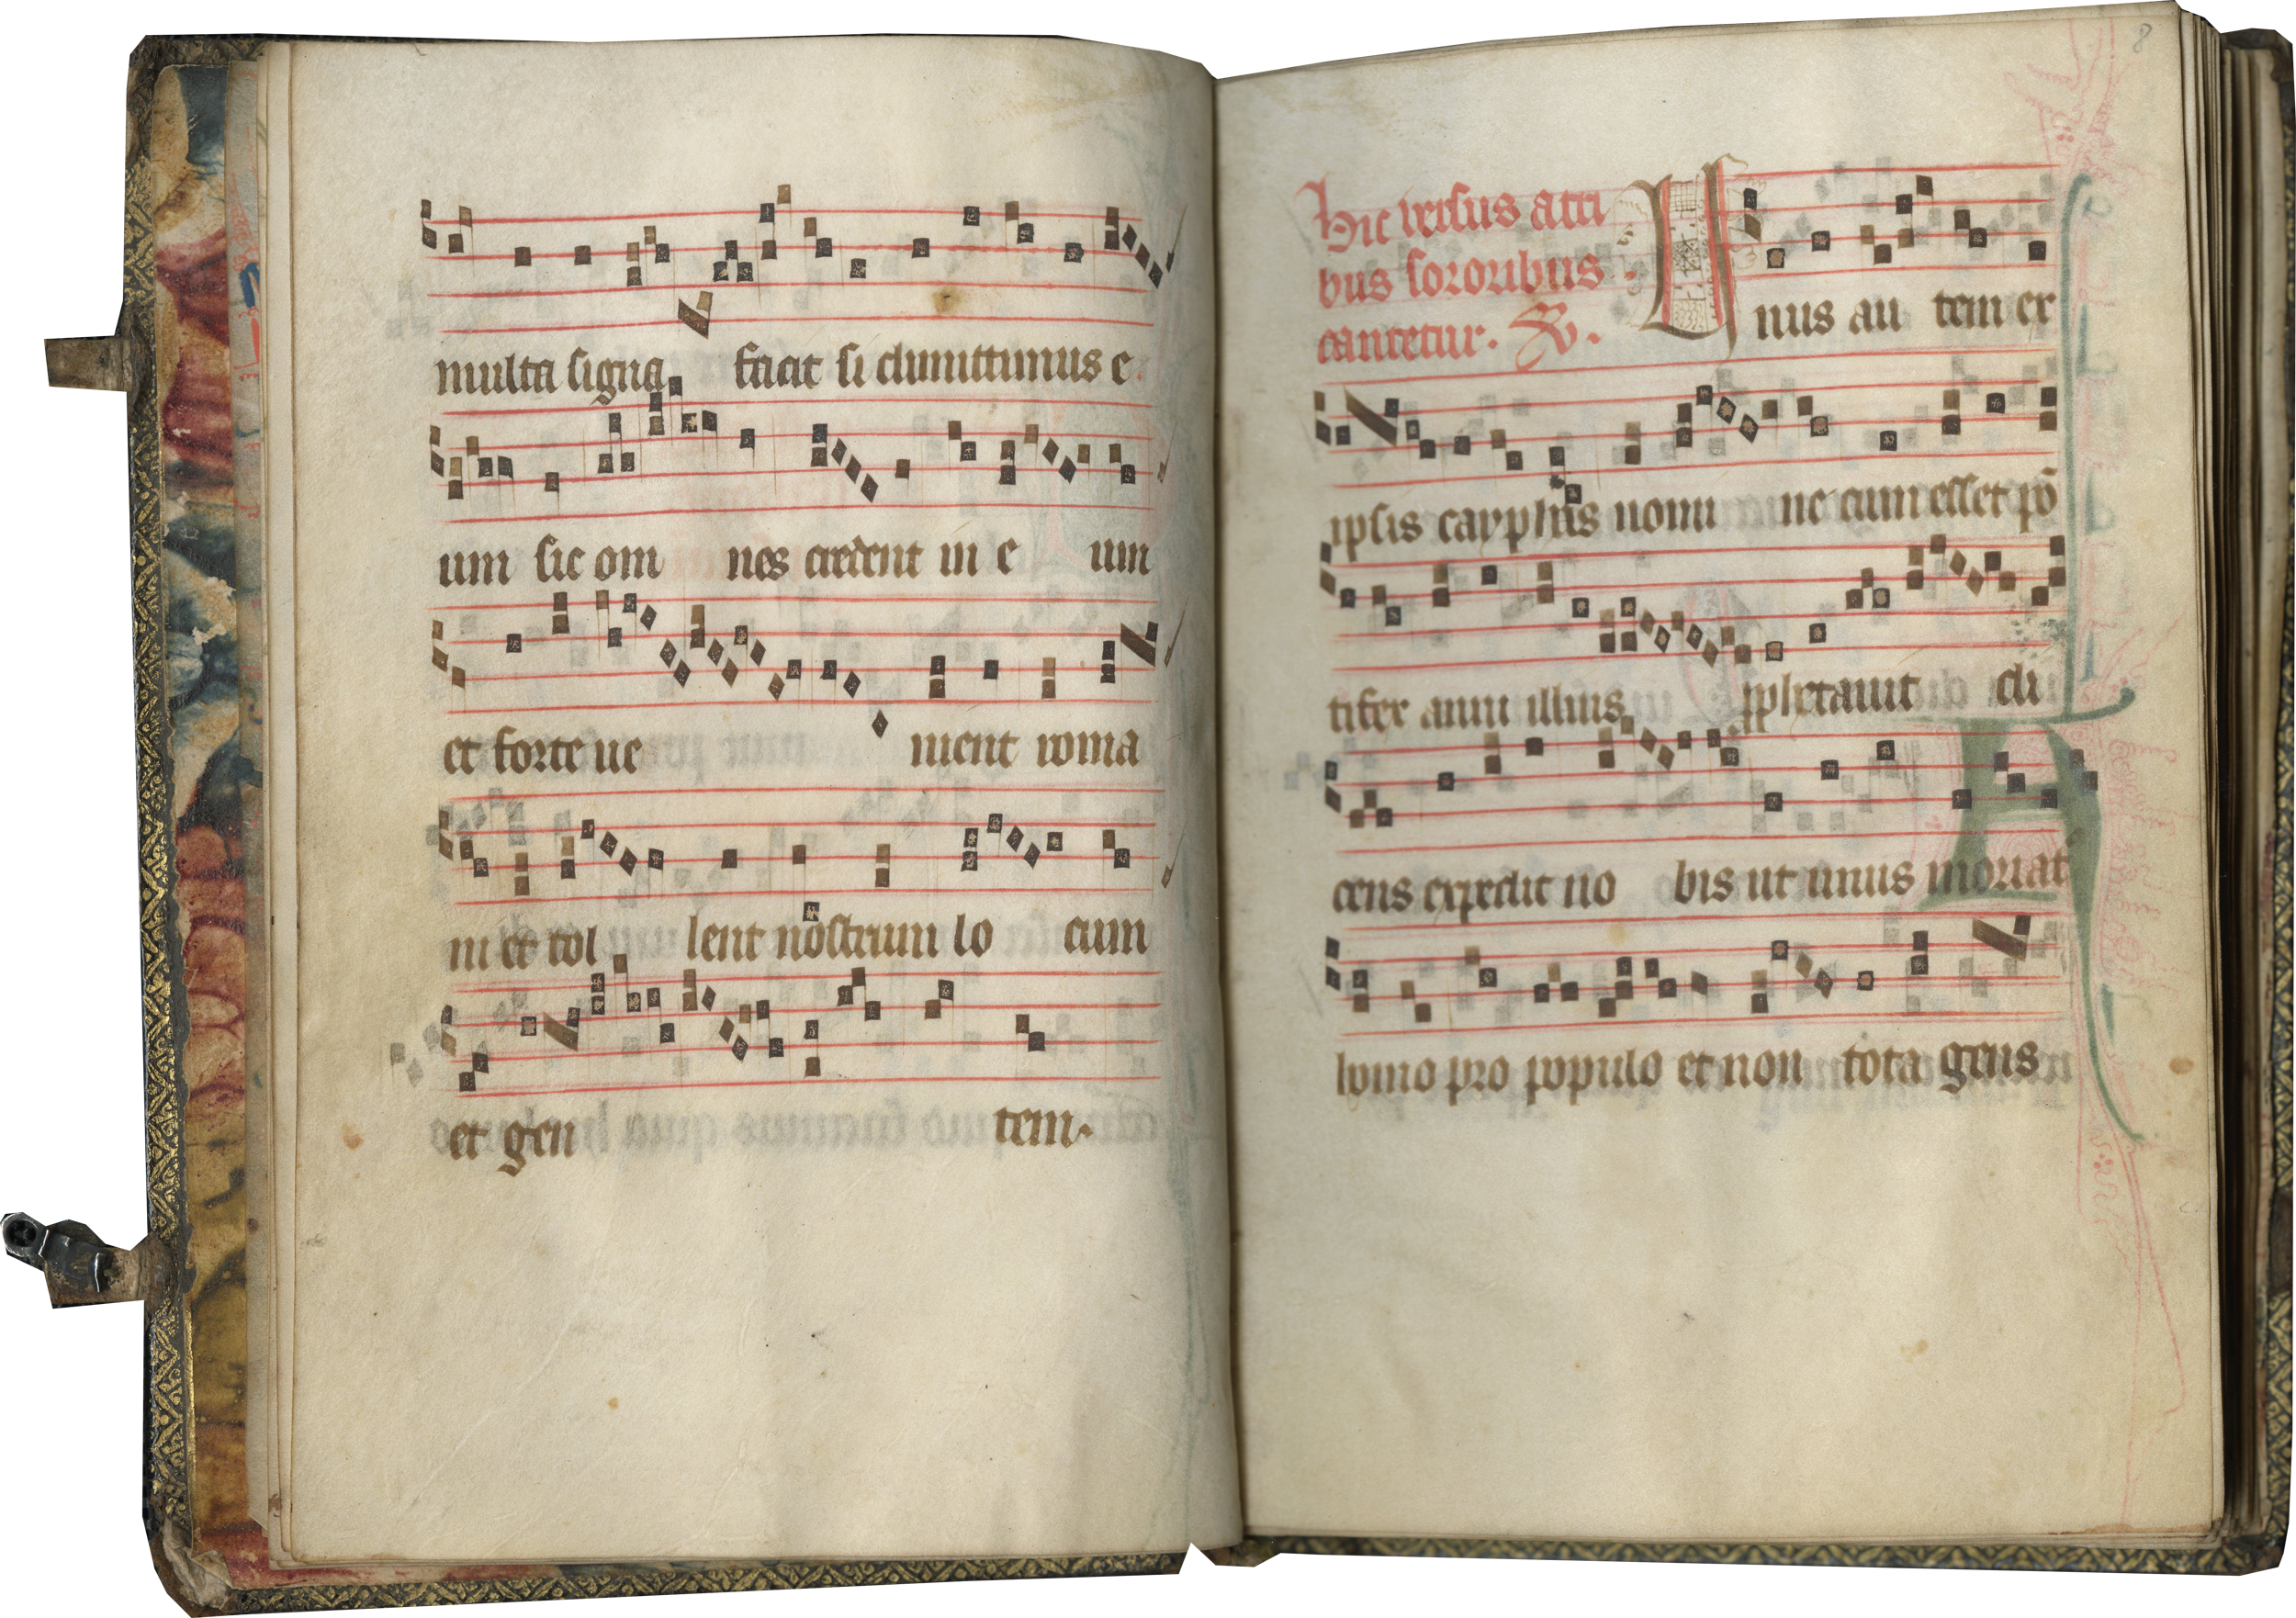 multa signa facit si dimittimus e
um sic om nes credent in e um
et forte ue nient roma
ni et tol lent nostrum lo cum
et gen tem.
8
hic versus a tri
bus sororibus
cantetur. V.
Unus au tem ex
ipsis cayphas nomi ne cum esset pō
tifex anni illius pphetauit di
cens expedit no bis ut unus moriat
homo pro populo et non tota gens